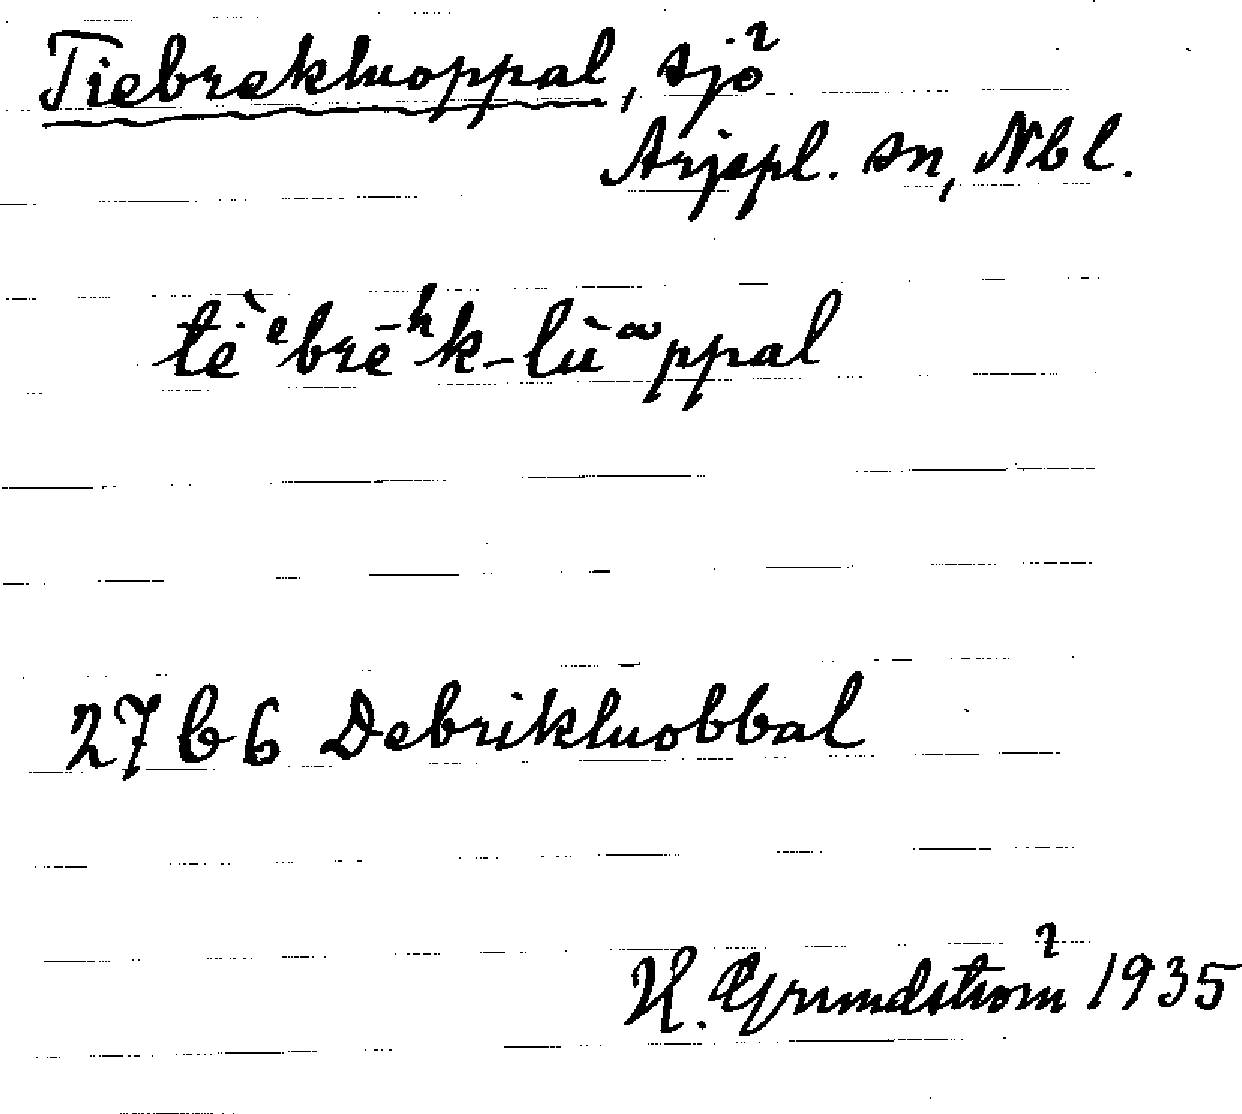 Tiebrekluoppal, sjö
Arjepl. sn, Nbl.
tèˋᵉbrēʰk-lùᵚppal
27 b 6 Debrikluobbal
H. Grundström 1935